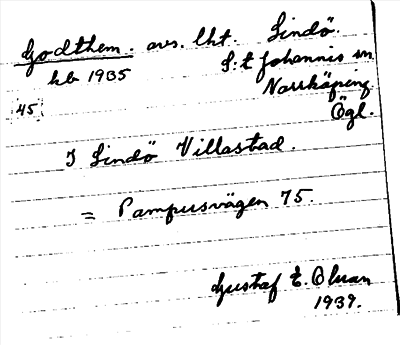 Godthem. avs. lht. Lindö.
kb 1935 S:t Johannis sn
Norrköping
45 Ögl.
I Lindö Villastad.
= Pampusvägen 75.
Gustaf E. Olsson
1939.